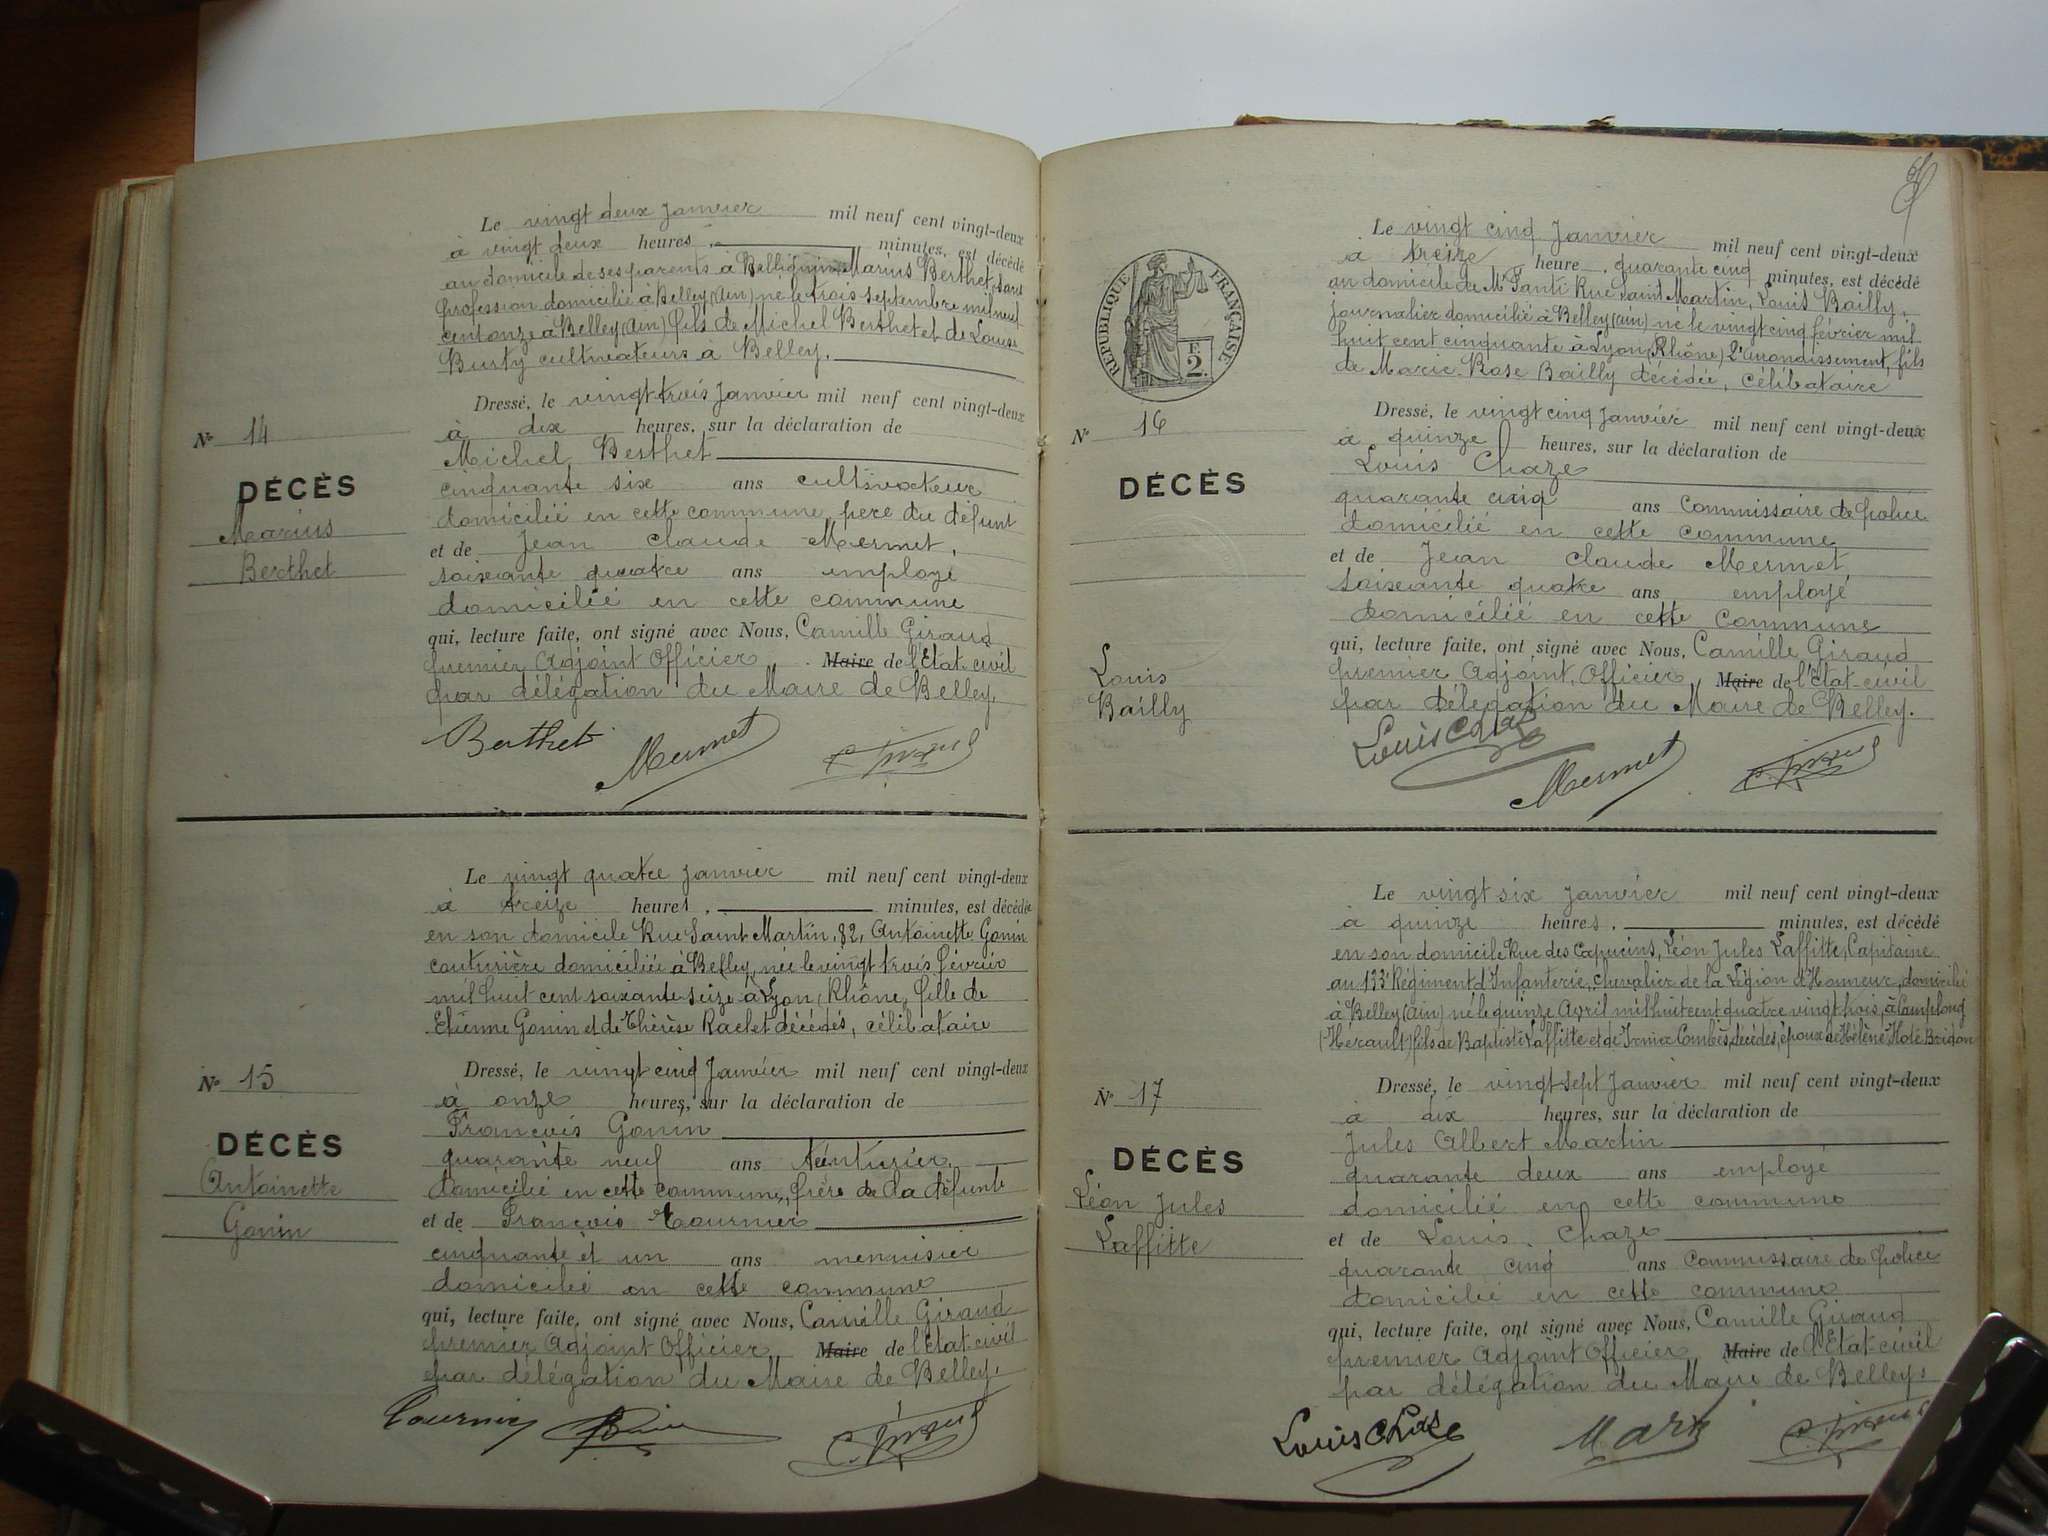 Le vingt deux Janvier mil neuf cent vingt-deux
à vingt deux heures, minutes, est décédé
au domicile de ses parents à Billignin, Marius Berthet, sans
profession domicilié à Belley (Ain) né le trois septembre mil neuf
cent onze à Belley (Ain) fils de Michel Berthet et de Louise
Burty cultivateurs à Belley.
Dressé, le vingt trois Janvier mil neuf cent vingt-deux
à dix heures, sur la déclaration de
Michel Berthet
cinquante six ans cultivateur
domicilié en cette commune, père du défunt
et de Jean Claude Mermet,
soixante quatre ans employé
domicilié en cette commune
qui, lecture faite, ont signé avec Nous, Camille Giraud
premier Adjoint Officier Maire de l'Etat-civil
par délégation du Maire de Belley.
Berthet Mermet C. Giraud
N° 14
DÉCÈS
Marius
Berthet
Le vingt quatre Janvier mil neuf cent vingt-deux
à treize heures, minutes, est décédée
en son domicile Rue Saint Martin, 82, Antoinette Gonin
couturière domiciliée à Belley, née le vingt trois février
mil huit cent soixante seize à Lyon, Rhône, fille de
Etienne Gonin et de Thérèse Raclet décédés, célibataire
Dressé, le vingt cinq Janvier mil neuf cent vingt-deux
à onze heures, sur la déclaration de
François Gonin
quarante neuf ans teinturier,
domicilié en cette commune, frère de la défunte
et de François Tournier
cinquante et un ans menuisier
domicilié en cette commune
qui, lecture faite, ont signé avec Nous, Camille Giraud
premier Adjoint Officier Maire de l'Etat-civil
par délégation du Maire de Belley.
Tournier Gonin C. Giraud
N° 15
DÉCÈS
Antoinette
Gonin
RÉPUBLIQUE FRANÇAISE
F.
2.
Le vingt cinq Janvier mil neuf cent vingt-deux
à treize heure, quarante cinq minutes, est décédé
au domicile de Mr Santi Rue Saint Martin, Louis Bailly,
journalier domicilié à Belley (Ain) né le vingt cinq février mil
huit cent cinquante à Lyon (Rhône) 2e arrondissement, fils
de Marie Rose Bailly décédée, célibataire
Dressé, le vingt cinq Janvier mil neuf cent vingt-deux
à quinze heures, sur la déclaration de
Louis Chaze
quarante cinq ans Commissaire de Police
domicilié en cette commune
et de Jean Claude Mermet,
soixante quatre ans employé
domicilié en cette Commune
qui, lecture faite, ont signé avec Nous, Camille Giraud
premier Adjoint, Officier Maire de l'Etat-civil
par délégation du Maire de Belley.
Louis Chaze
Mermet C. Giraud
N° 16
DÉCÈS
Louis
Bailly
Le vingt six Janvier mil neuf cent vingt-deux
à quinze heures, minutes, est décédé
en son domicile Rue des Capucins, Léon Jules Laffitte, Capitaine
au 133e Régiment d'Infanterie, Chevalier de la Légion d'Honneur, domicilié
à Belley (Ain) né le quinze Avril mil huit cent quatre vingt trois, à Camplong
(Herault) fils de Baptiste Laffitte et de Irma Combes, décédés, époux de Hélène Boidon
Dressé, le vingt sept Janvier mil neuf cent vingt-deux
à dix heures, sur la déclaration de
Jules Albert Martin
quarante deux ans employé
domicilié en cette commune
et de Louis Chaze
quarante cinq ans Commissaire de Police
domicilié en cette commune
qui, lecture faite, ont signé avec Nous, Camille Giraud
premier Adjoint Officier Maire de l'Etat-civil
par délégation du Maire de Belley.
Louis Chaze C. Giraud
N° 17
DÉCÈS
Léon Jules
Laffitte